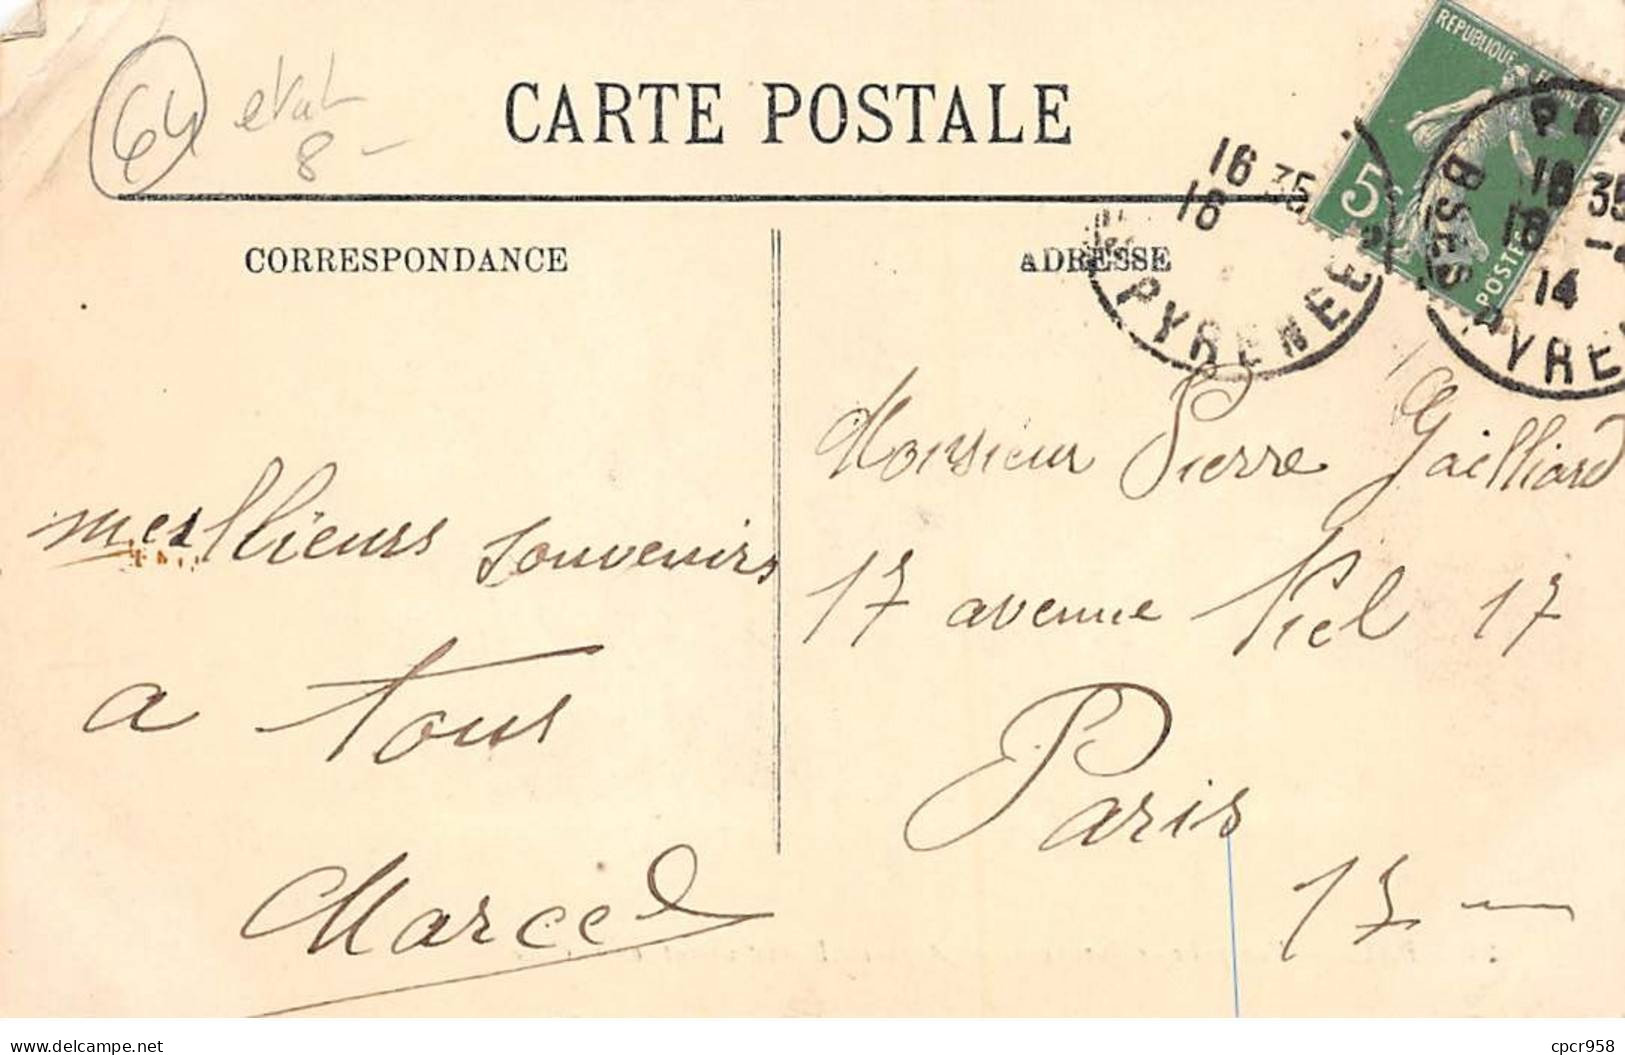 64 etat
8 -
CARTE POSTALE
CORRESPONDANCE
ADRESSE
REPUBLIQUE FRANÇAISE
5c
POSTES
16 35
16
PYRENEE
PA
16 35
16 -
14
BSES PYRE
Monsieur Pierre Gailliard
17 avenue Niel 17
Paris
17 —
meillieurs souvenirs
a tous
Marcel
www.delcampe.net
cpcr958